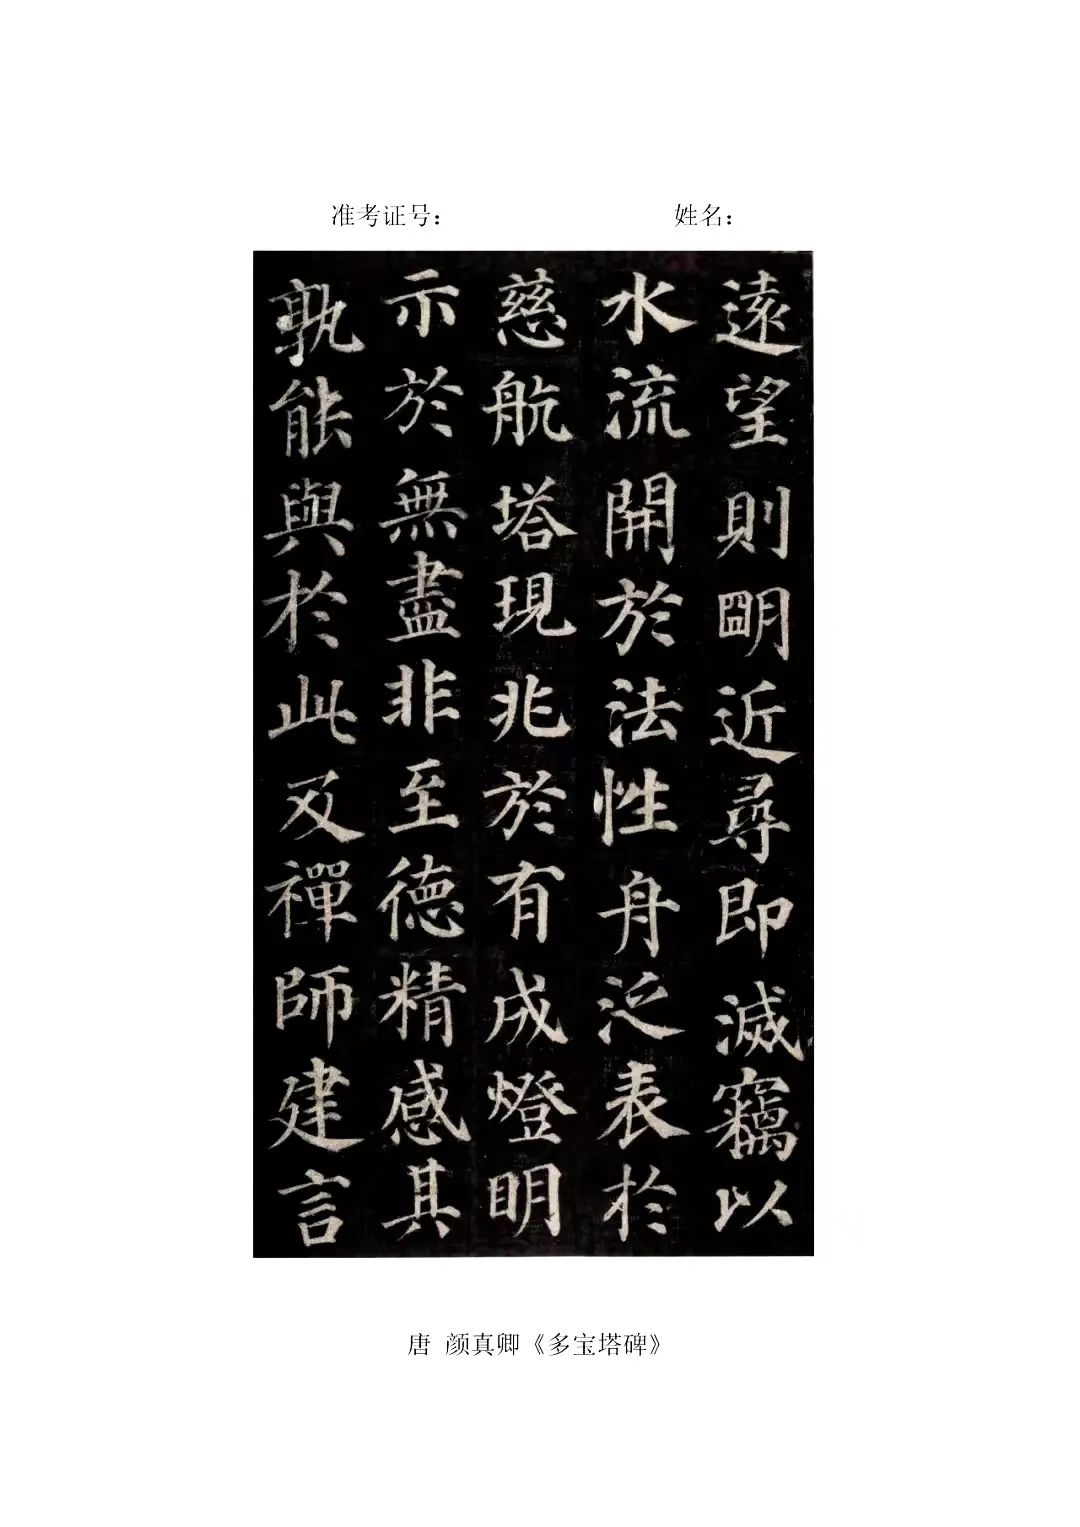 准考证号： 姓名：
遠望則明近尋即滅竊以
水流開於法性舟泛表於
慈航塔現兆於有成燈明
示於無盡非至德精感其
孰能與於此及禪師建言
唐 颜真卿《多宝塔碑》